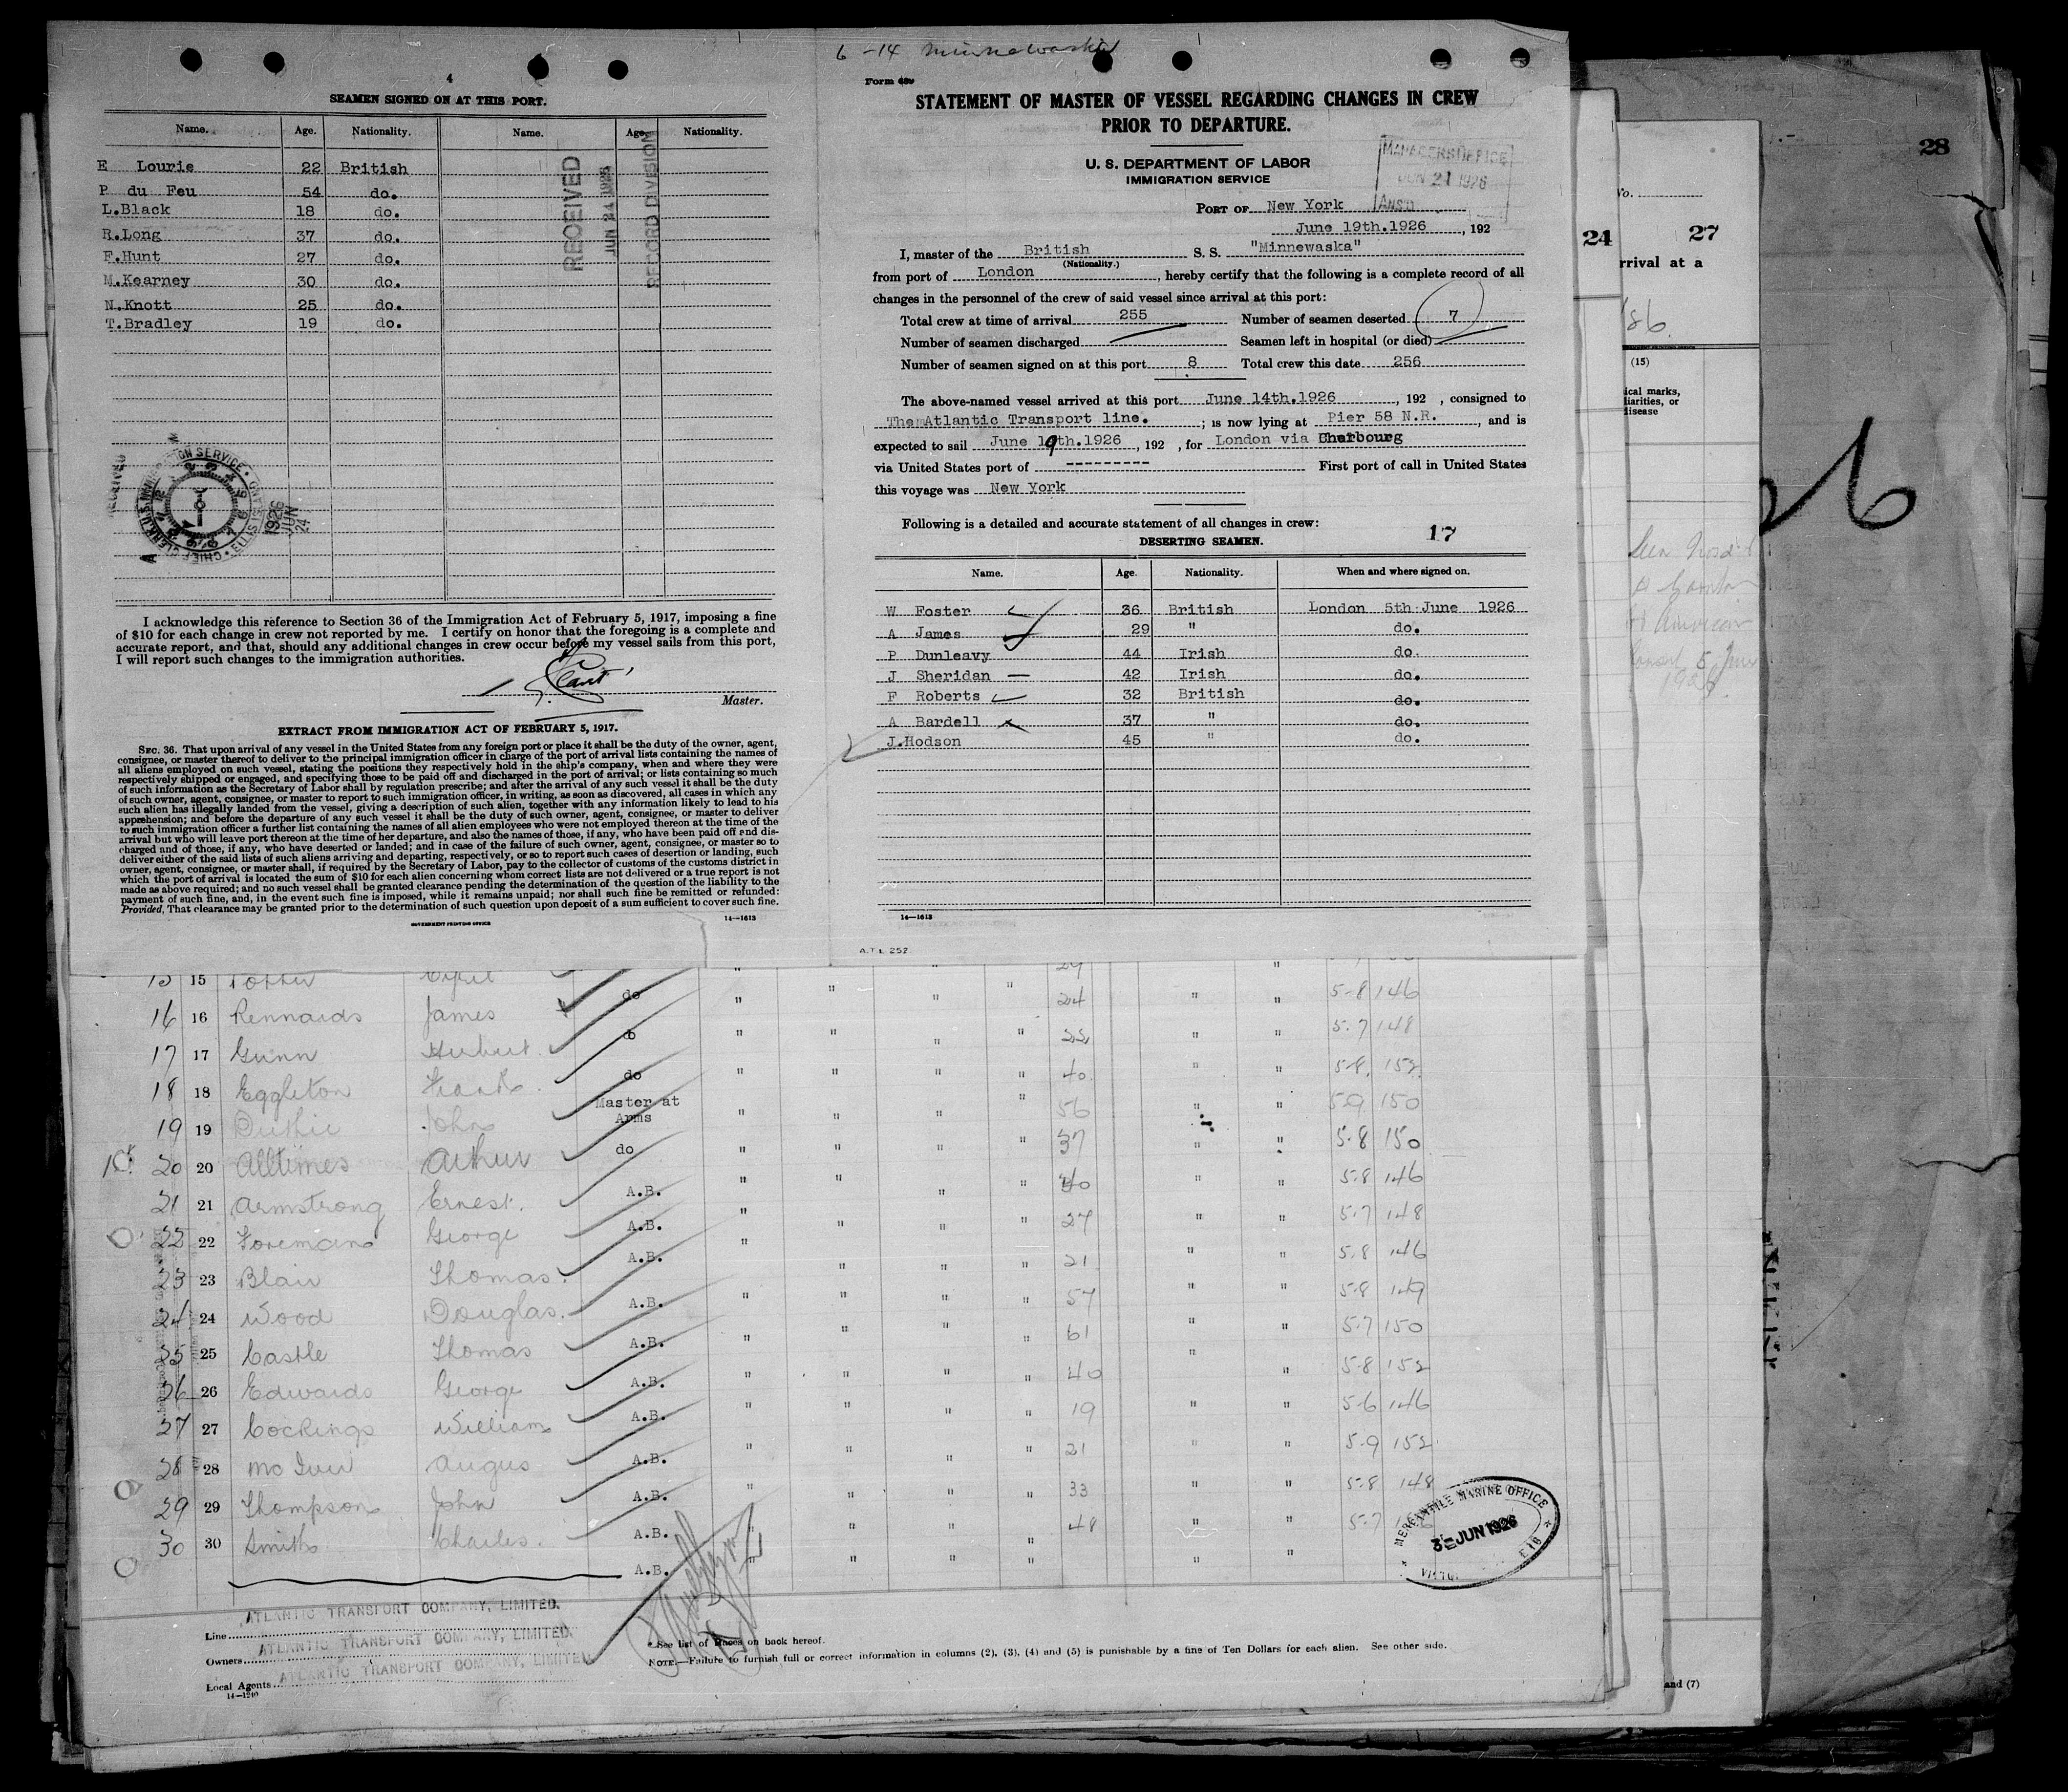 4
SEAMEN SIGNED ON AT THIS PORT.
Name. Age. Nationality. Name. Age. Nationality.
E Lourie 22 British
P du Feu 54 do.
L.Black 18 do.
R.Long 37 do.
F.Hunt 27 do.
M.Kearney 30 do.
N.Knott 25 do.
T.Bradley 19 do.
RECEIVED
JUN 24 1926
RECORD DIVISION
I acknowledge this reference to Section 36 of the Immigration Act of February 5, 1917, imposing a fine
of $10 for each change in crew not reported by me. I certify on honor that the foregoing is a complete and
accurate report, and that, should any additional changes in crew occur before my vessel sails from this port,
I will report such changes to the immigration authorities.
Master.
EXTRACT FROM IMMIGRATION ACT OF FEBRUARY 5, 1917.
SEC. 36. That upon arrival of any vessel in the United States from any foreign port or place it shall be the duty of the owner, agent,
consignee, or master thereof to deliver to the principal immigration officer in charge of the port of arrival lists containing the names of
all aliens employed on such vessel, stating the positions they respectively hold in the ship's company, when and where they were
respectively shipped or engaged, and specifying those to be paid off and discharged in the port of arrival; or lists containing so much
of such information as the Secretary of Labor shall by regulation prescribe; and after the arrival of any such vessel it shall be the duty
of such owner, agent, consignee, or master to report to such immigration officer, in writing, as soon as discovered, all cases in which any
such alien has illegally landed from the vessel, giving a description of such alien, together with any information likely to lead to his
apprehension; and before the departure of any such vessel it shall be the duty of such owner, agent, consignee, or master to deliver
to such immigration officer a further list containing the names of all alien employees who were not employed thereon at the time of the
arrival but who will leave port thereon at the time of her departure, and also the names of those, if any, who have been paid off and dis-
charged and of those, if any, who have deserted or landed; and in case of the failure of such owner, agent, consignee, or master so to
deliver either of the said lists of such aliens arriving and departing, respectively, or so to report such cases of desertion or landing, such
owner, agent, consignee, or master shall, if required by the Secretary of Labor, pay to the collector of customs of the customs district in
which the port of arrival is located the sum of $10 for each alien concerning whom correct lists are not delivered or a true report is not
made as above required; and no such vessel shall be granted clearance pending the determination of the question of the liability to the
payment of such fine, and, in the event such fine is imposed, while it remains unpaid; nor shall such fine be remitted or refunded:
Provided, That clearance may be granted prior to the determination of such question upon deposit of a sum sufficient to cover such fine.
GOVERNMENT PRINTING OFFICE 14—1613
6-14 Minnewaska
Form 689
STATEMENT OF MASTER OF VESSEL REGARDING CHANGES IN CREW
PRIOR TO DEPARTURE.
U. S. DEPARTMENT OF LABOR
IMMIGRATION SERVICE
MANAGERS OFFICE
JUN 21 1926
ANS'D
PORT OF New York
June 19th.1926, 192
I, master of the British S. S. "Minnewaska"
(Nationality.)
from port of London, hereby certify that the following is a complete record of all
changes in the personnel of the crew of said vessel since arrival at this port:
Total crew at time of arrival 255 Number of seamen deserted 7
Number of seamen discharged Seamen left in hospital (or died)
Number of seamen signed on at this port 8 Total crew this date 256
The above-named vessel arrived at this port June 14th.1926, 192 , consigned to
The Atlantic Transport line. ; is now lying at Pier 58 N.R., and is
expected to sail June 19th.1926, 192 , for London via Cherbourg
via United States port of --------- First port of call in United States
this voyage was New York
Following is a detailed and accurate statement of all changes in crew:
DESERTING SEAMEN. 17
Name. Age. Nationality. When and where signed on.
W Foster 36 British London 5th June 1926
A James 29 " do.
P Dunleavy 44 Irish do.
J Sheridan 42 Irish do.
F Roberts 32 British do.
A Bardell 37 " do.
J.Hodson 45 " do.
14—1613
A.T.L. 252
15 15
16 16 Rennards James do 24 5-8 146
17 17 Gunn Herbert do 22 5-7 148
18 18 Eggleton Frank do 40 5-8 152
19 19 Duthie John Master at Arms 56 5-9 150
20 20 Alltimes Arthur do 37 5-8 150
21 21 Armstrong Ernest A.B. 40 5-8 146
22 22 Foreman George A.B. 27 5-7 148
23 23 Blair Thomas A.B. 21 5-8 146
24 24 Wood Douglas A.B. 57 5-8 149
25 25 Castle Thomas A.B. 61 5-7 150
26 26 Edwards George A.B. 40 5-8 152
27 27 Cockings William A.B. 19 5-6 146
28 28 Angus A.B. 21 5-9 152
29 29 Thompson John A.B. 33 5-8 148
30 30 Smith Charles A.B. 48 5-7
MERCANTILE MARINE OFFICE
3 JUN 1926
Line ATLANTIC TRANSPORT COMPANY, LIMITED.
Owners ATLANTIC TRANSPORT COMPANY, LIMITED.
Local Agents ATLANTIC TRANSPORT COMPANY, LIMITED
14—1240
* See list of Races on back hereof.
NOTE.—Failure to furnish full or correct information in columns (2), (3), (4) and (5) is punishable by a fine of Ten Dollars for each alien. See other side.
24
27
rrival at a
(15)
ical marks,
liarities, or
disease
and (7)
28